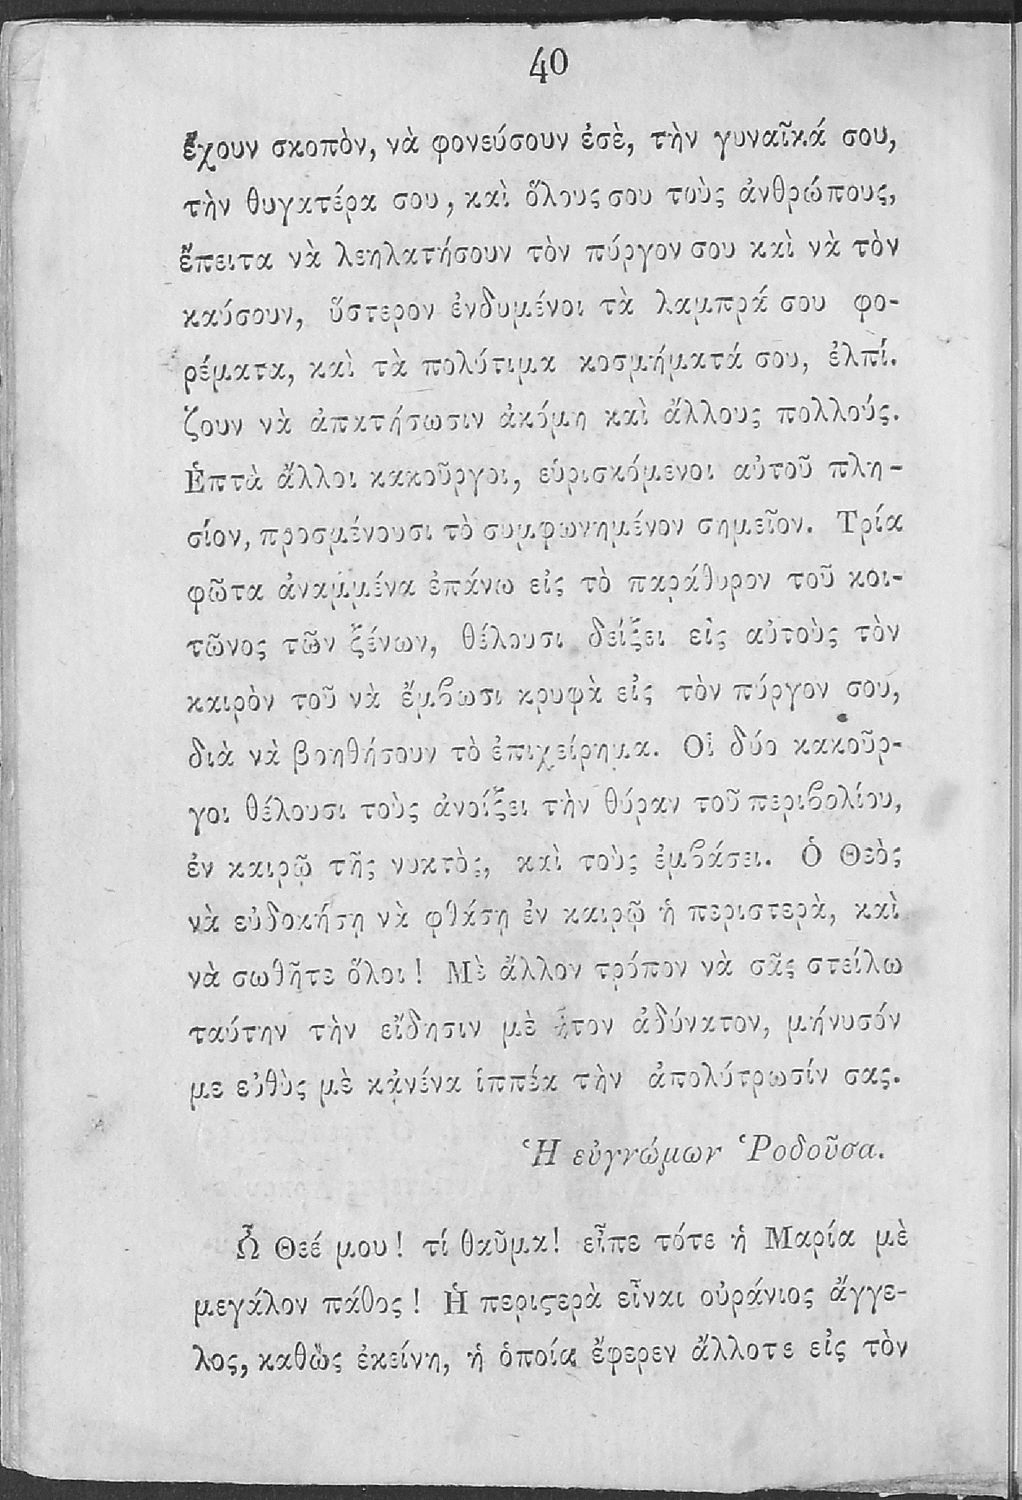 40
ἔχουν σκοπὸν, νὰ φονεύσουν ἐσὲ, τὴν γυναῖκά σου,
τὴν θυγατέρα σου, καὶ ὅλους σου τοὺς ἀνθρώπους,
ἔπειτα νὰ λεηλατήσουν τὸν πύργον σου καὶ νὰ τὸν
καύσουν, ὕστερον ἐνδυμένοι τὰ λαμπρά σου φο-
ρέματα, καὶ τὰ πολύτιμα κοσμήματά σου, ἐλπί.
ζουν νὰ ἀπατήσωσιν ἀκόμη καὶ ἄλλους πολλούς.
Ἑπτὰ ἄλλοι κακοῦργοι, εὑρισκόμενοι αὐτοῦ πλη-
σίον, προσμένουσι τὸ συμφωνημένον σημεῖον. Τρία
φῶτα ἀναμμένα ἐπάνω εἰς τὸ παράθυρον τοῦ κοι-
τῶνος τῶν ξένων, θέλουσι δείξει εἰς αὐτοὺς τὸν
καιρὸν τοῦ νὰ ἔμβωσι κρυφὰ εἰς τὸν πύργον σου,
διὰ νὰ βοηθήσουν τὸ ἐπιχείρημα. Οἱ δύο κακοῦρ-
γοι θέλουσι τοὺς ἀνοίξει τὴν θύραν τοῦ περιβολίου,
ἐν καιρῷ τῆς νυκτὸς, καὶ τοὺς ἐμβάσει. Ὁ Θεὸς
νὰ εὐδοκήσῃ νὰ φθάσῃ ἐν καιρῷ ἡ περιστερὰ, καὶ
νὰ σωθῆτε ὅλοι! Μὲ ἄλλον τρόπον νὰ σᾶς στείλω
ταύτην τὴν εἴδησιν μὲ ἦτον ἀδύνατον, μήνυσόν
με εὐθὺς μὲ κᾀνένα ἱππέα τὴν ἀπολύτρωσίν σας.
Ἡ εὐγνώμων Ῥοδοῦσα.
Ὦ Θεέ μου! τί θαῦμα! εἶπε τότε ἡ Μαρία μὲ
μεγάλον πάθος! Ἡ περιϛερὰ εἶναι οὐράνιος ἄγγε-
λος, καθὼς ἐκείνη, ἡ ὁποία ἔφερεν ἄλλοτε εἰς τὸν